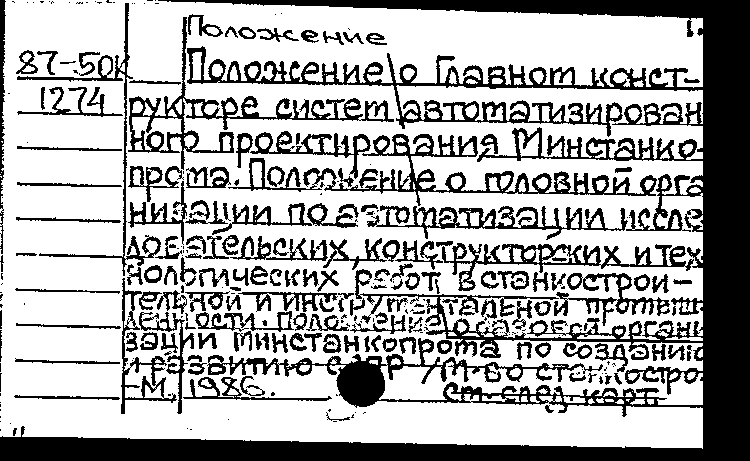 Положение
1.
87-50К
1274
Положение о Главном конст-
рукторе систем автоматизирован
ного проектирования Минстанко-
прома. Положение о головной орга
низации по автоматизации иссле
довательских, конструкторских и тех
нологических работ в станкострои-
тельной и инструментальной промыш
ленности. Положение о базовой органи
зации Минстанкопрома по созданию
и развитию САПР /М-во станкостро.
-М., 1986.
См. след. карт.